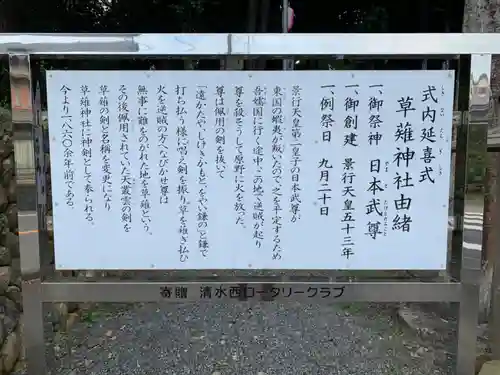 式内延喜式
草薙神社由緒
一、御祭神 日本武尊
一、御創建 景行天皇五十三年
一、例祭日 九月二十日
景行天皇第二皇子日本武尊が
東国の蝦夷が叛いたので之を平定するため
吾嬬国に行く途中、この地で逆賊が起り
尊を殺そうとして原野に火を放った。
尊は佩用の剣を抜いて
「遠かたや、しけきかもとをやい鎌の」と鎌で
打ち払う様に唱え剣を振り草を薙ぎ払ひ
火を逆賊の方へなびかせ尊は
無事に難をのがれた地を草薙という。
その後佩用されていた天叢雲の剣を
草薙の剣と名称を変更になり
草薙神社に神剣として奉られる。
今より一八六〇余年前である。
寄贈 清水西ロータリークラブ